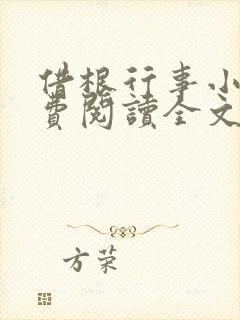 借根行事小
費閱讀全文
方荣